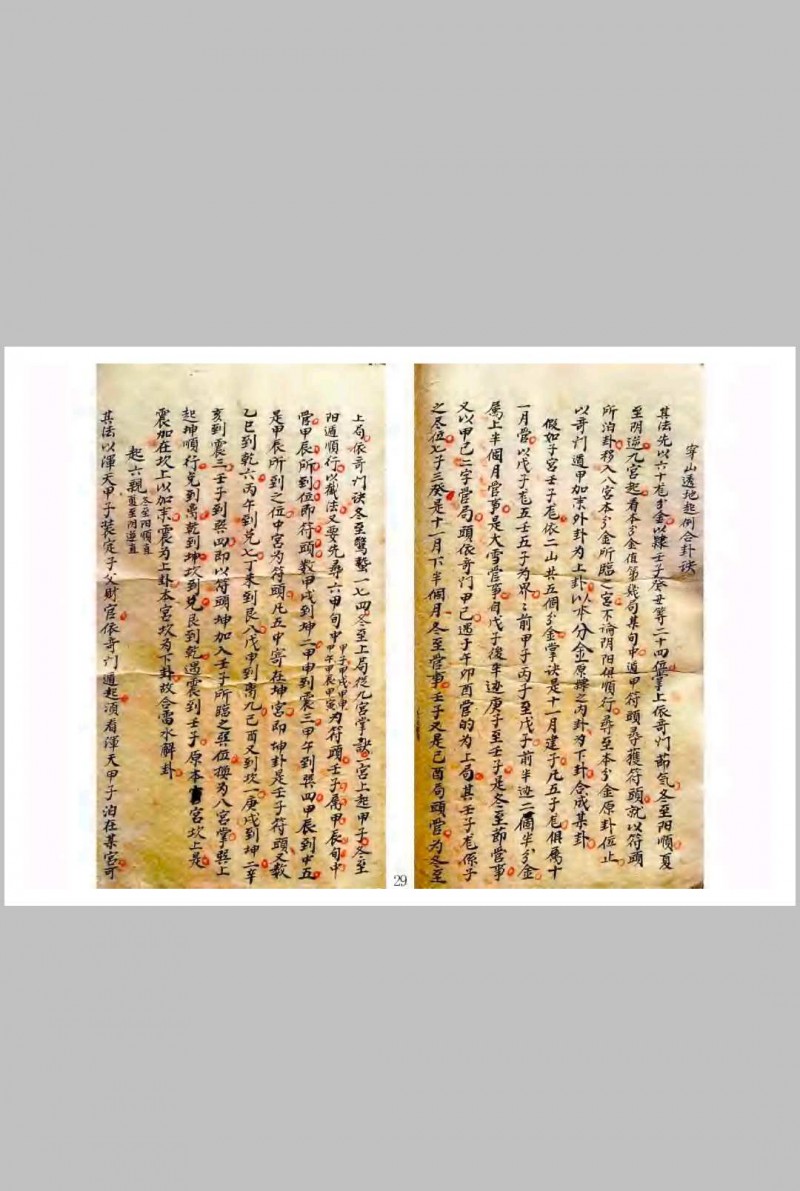 穿山透地起例合卦诀
其法先以六十龙分金以隸壬子癸丑等二十四位掌上依奇门節気冬至阳順夏
至阴逆九宫起看本分金值第幾局某旬中遁甲符頭尋獲符頭就以符頭
所泊卦移入八宫本分金所臨之宫不論阴阳俱順行尋至本分金原卦位止
以奇门遁甲加来外卦为上卦以本分金原隸之内卦为下卦合成某卦
假如子宫壬子龙依二山共五個分金掌诀是十一月建子凡五子龙俱属十
一月管以戊子龙五壬五子为界前甲子丙子至戊子前半边二個半分金
属上半個月管事是大雪管事自戊子後半边庚子至壬子是冬至節管事
又以甲己二字管局頭依奇门甲己遇子午卯酉管的为上局其壬子龙係子
之尽位七子三癸是十一月下半個月冬至管事壬子又是己酉局頭管为冬至
上局依奇门诀冬至驚蟄一七四冬至上局從九宫掌訣一宫上起甲子冬至
阳遁順行以截法又要先尋六甲旬中甲子甲戌甲申甲午甲辰甲寅为符頭壬子属甲辰旬中
管甲辰所到位即符頭数甲戌到坤二甲申到震三甲午到巽四甲辰到中五
是甲辰所到之位中宫为符頭凡五中寄在坤宫即坤卦是壬子符頭又数
乙巳到乾六丙午到兑七丁未到艮八戊申到离九己酉又到坎一庚戌到坤二辛
亥到震三壬子到巽四即以符頭坤加入壬子所臨之巽位換为八宫掌巽上
起坤順行兑到离乾到坤坎到兑艮到乾遇震到壬子原本宫坎上是
震加在坎上以加来震为上卦本宫坎为下卦故合雷水解卦
起六親冬至阳順直夏至阴逆直
其法以渾天甲子裝定子父財官依奇门遁起須看渾天甲子泊在某宫可
29